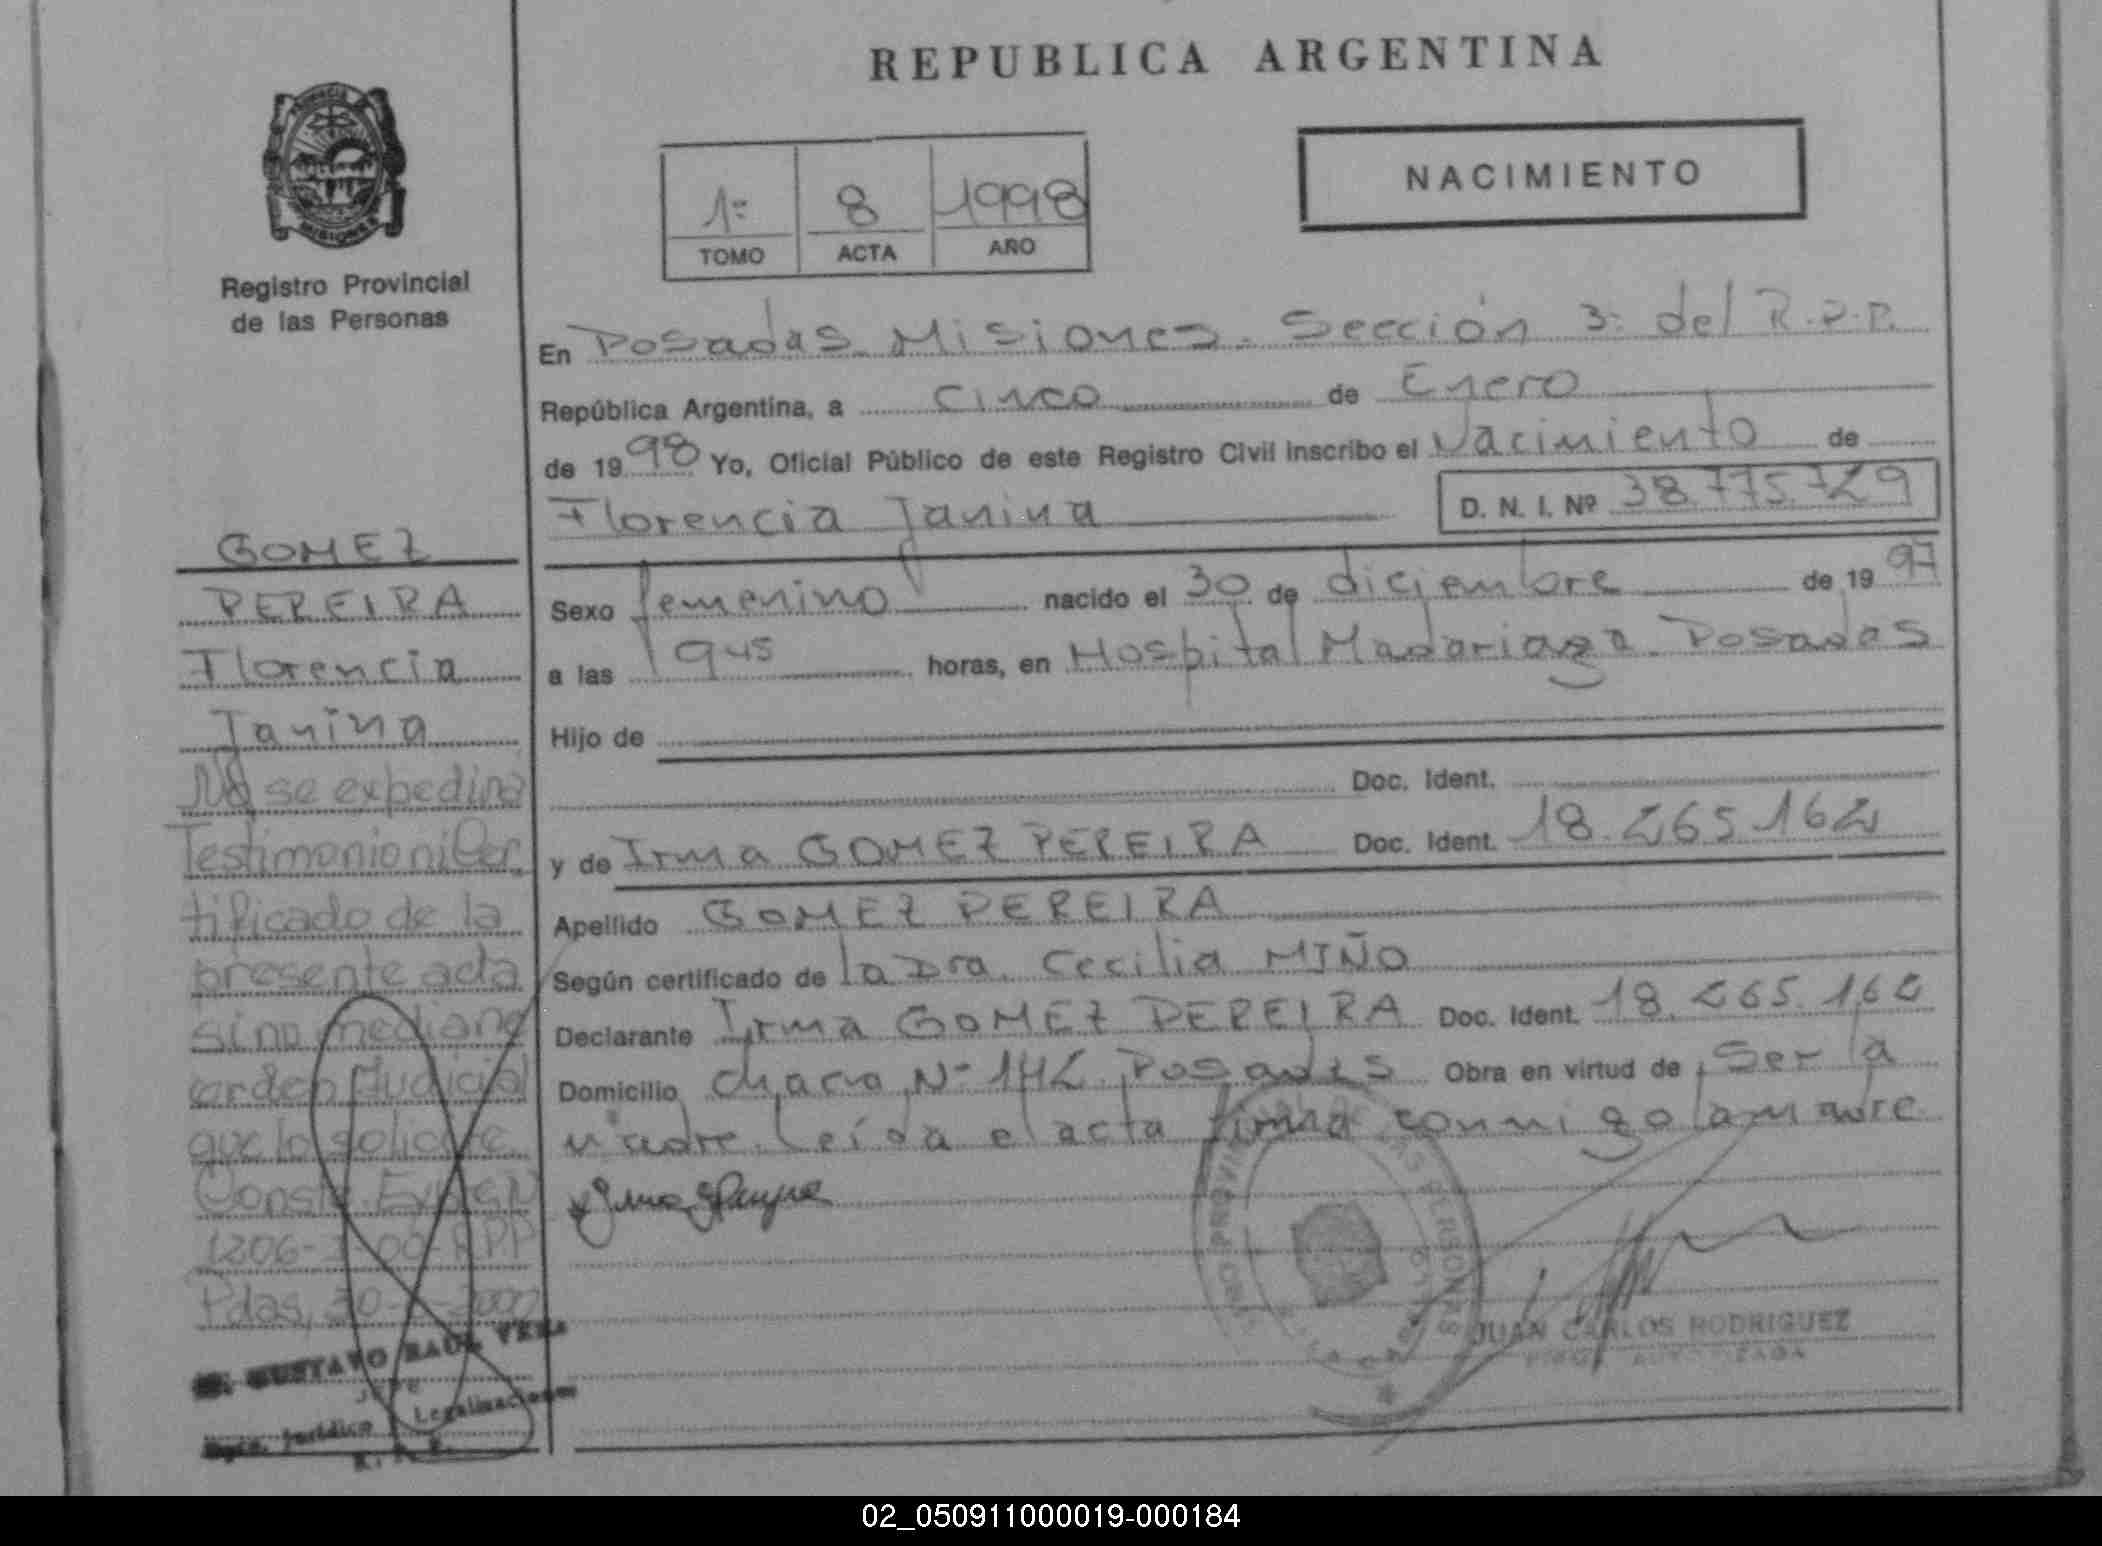 REPUBLICA ARGENTINA
NACIMIENTO
1º 8 1998
TOMO ACTA AÑO
PROVINCIA DE
MISIONES
Registro Provincial
de las Personas
En Posadas Misiones. Sección 3º del R.P.P.
República Argentina, a cinco de Enero
de 1998 Yo, Oficial Público de este Registro Civil inscribo el Nacimiento de
Florencia Janina D. N. I. Nº 38.775.729
Sexo femenino nacido el 30 de diciembre de 1997
a las 1945 horas, en Hospital Madariaga. Posadas
Hijo de
Doc. Ident.
y de Irma GOMEZ PEREIRA Doc. Ident. 18.265.162
Apellido GOMEZ PEREIRA
Según certificado de la Dra. Cecilia MIÑO
Declarante Irma GOMEZ PEREIRA Doc. Ident. 18.265.162
Domicilio chacra Nº 142 Posadas Obra en virtud de ser la
madre. Leída el acta firma conmigo la madre
GOMEZ
PEREIRA
Florencia
Janina
No se expedirá
Testimonio ni Cer
tificado de la
presente acta
sino mediante
orden Judicial
que lo solicite.
Conste. Expte Nº
1206-00-RPP
Pdas, 30- -2000
GUSTAVO RAUL VERA
JEFE
Dpto. Jurídico y Legalizaciones
R. P. P.
JUAN CARLOS RODRIGUEZ
FIRMA AUTORIZADA
02_050911000019-000184